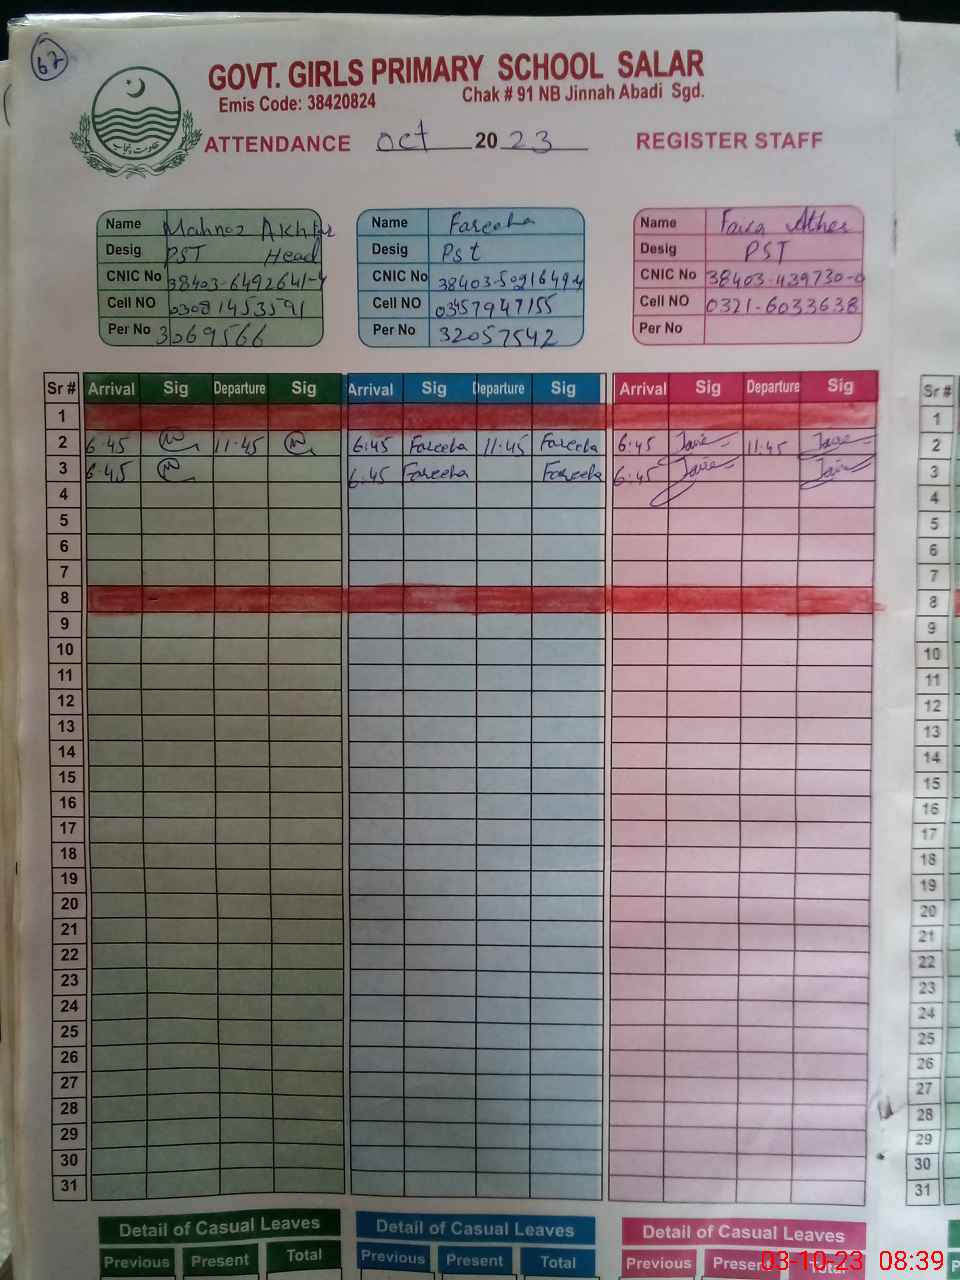 62
GOVT. GIRLS PRIMARY SCHOOL SALAR
Emis Code: 38420824 Chak # 91 NB Jinnah Abadi Sgd.
ATTENDANCE Oct 2023 REGISTER STAFF
حکومت پنجاب
Name Mahnoz Akhtar Name Fareeha Name Faiza Ather
Desig PST Head Desig Pst Desig PST
CNIC No 38403-6492641-4 CNIC No CNIC No 38403-439730-0
Cell NO 03081453591 Cell NO 03457947155 Cell NO 0321-6033638
Per No 3069566 Per No 32057542 Per No
Sr # Arrival Sig Departure Sig Arrival Sig Departure Sig Arrival Sig Departure Sig Sr #
1 1
2 6:45 11:45 6:45 Fareeha 11:45 Fareeha 6:45 11:45 2
3 6:45 6:45 Fareeha Fareeha 6:45 3
4 4
5 5
6 6
7 7
8 8
9 9
10 10
11 11
12 12
13 13
14 14
15 15
16 16
17 17
18 18
19 19
20 20
21 21
22 22
23 23
24 24
25 25
26 26
27 27
28 28
29 29
30 30
31 31
Detail of Casual Leaves Detail of Casual Leaves Detail of Casual Leaves
Previous Present Total Previous Present Total Previous Present Total
03-10-23 08:39